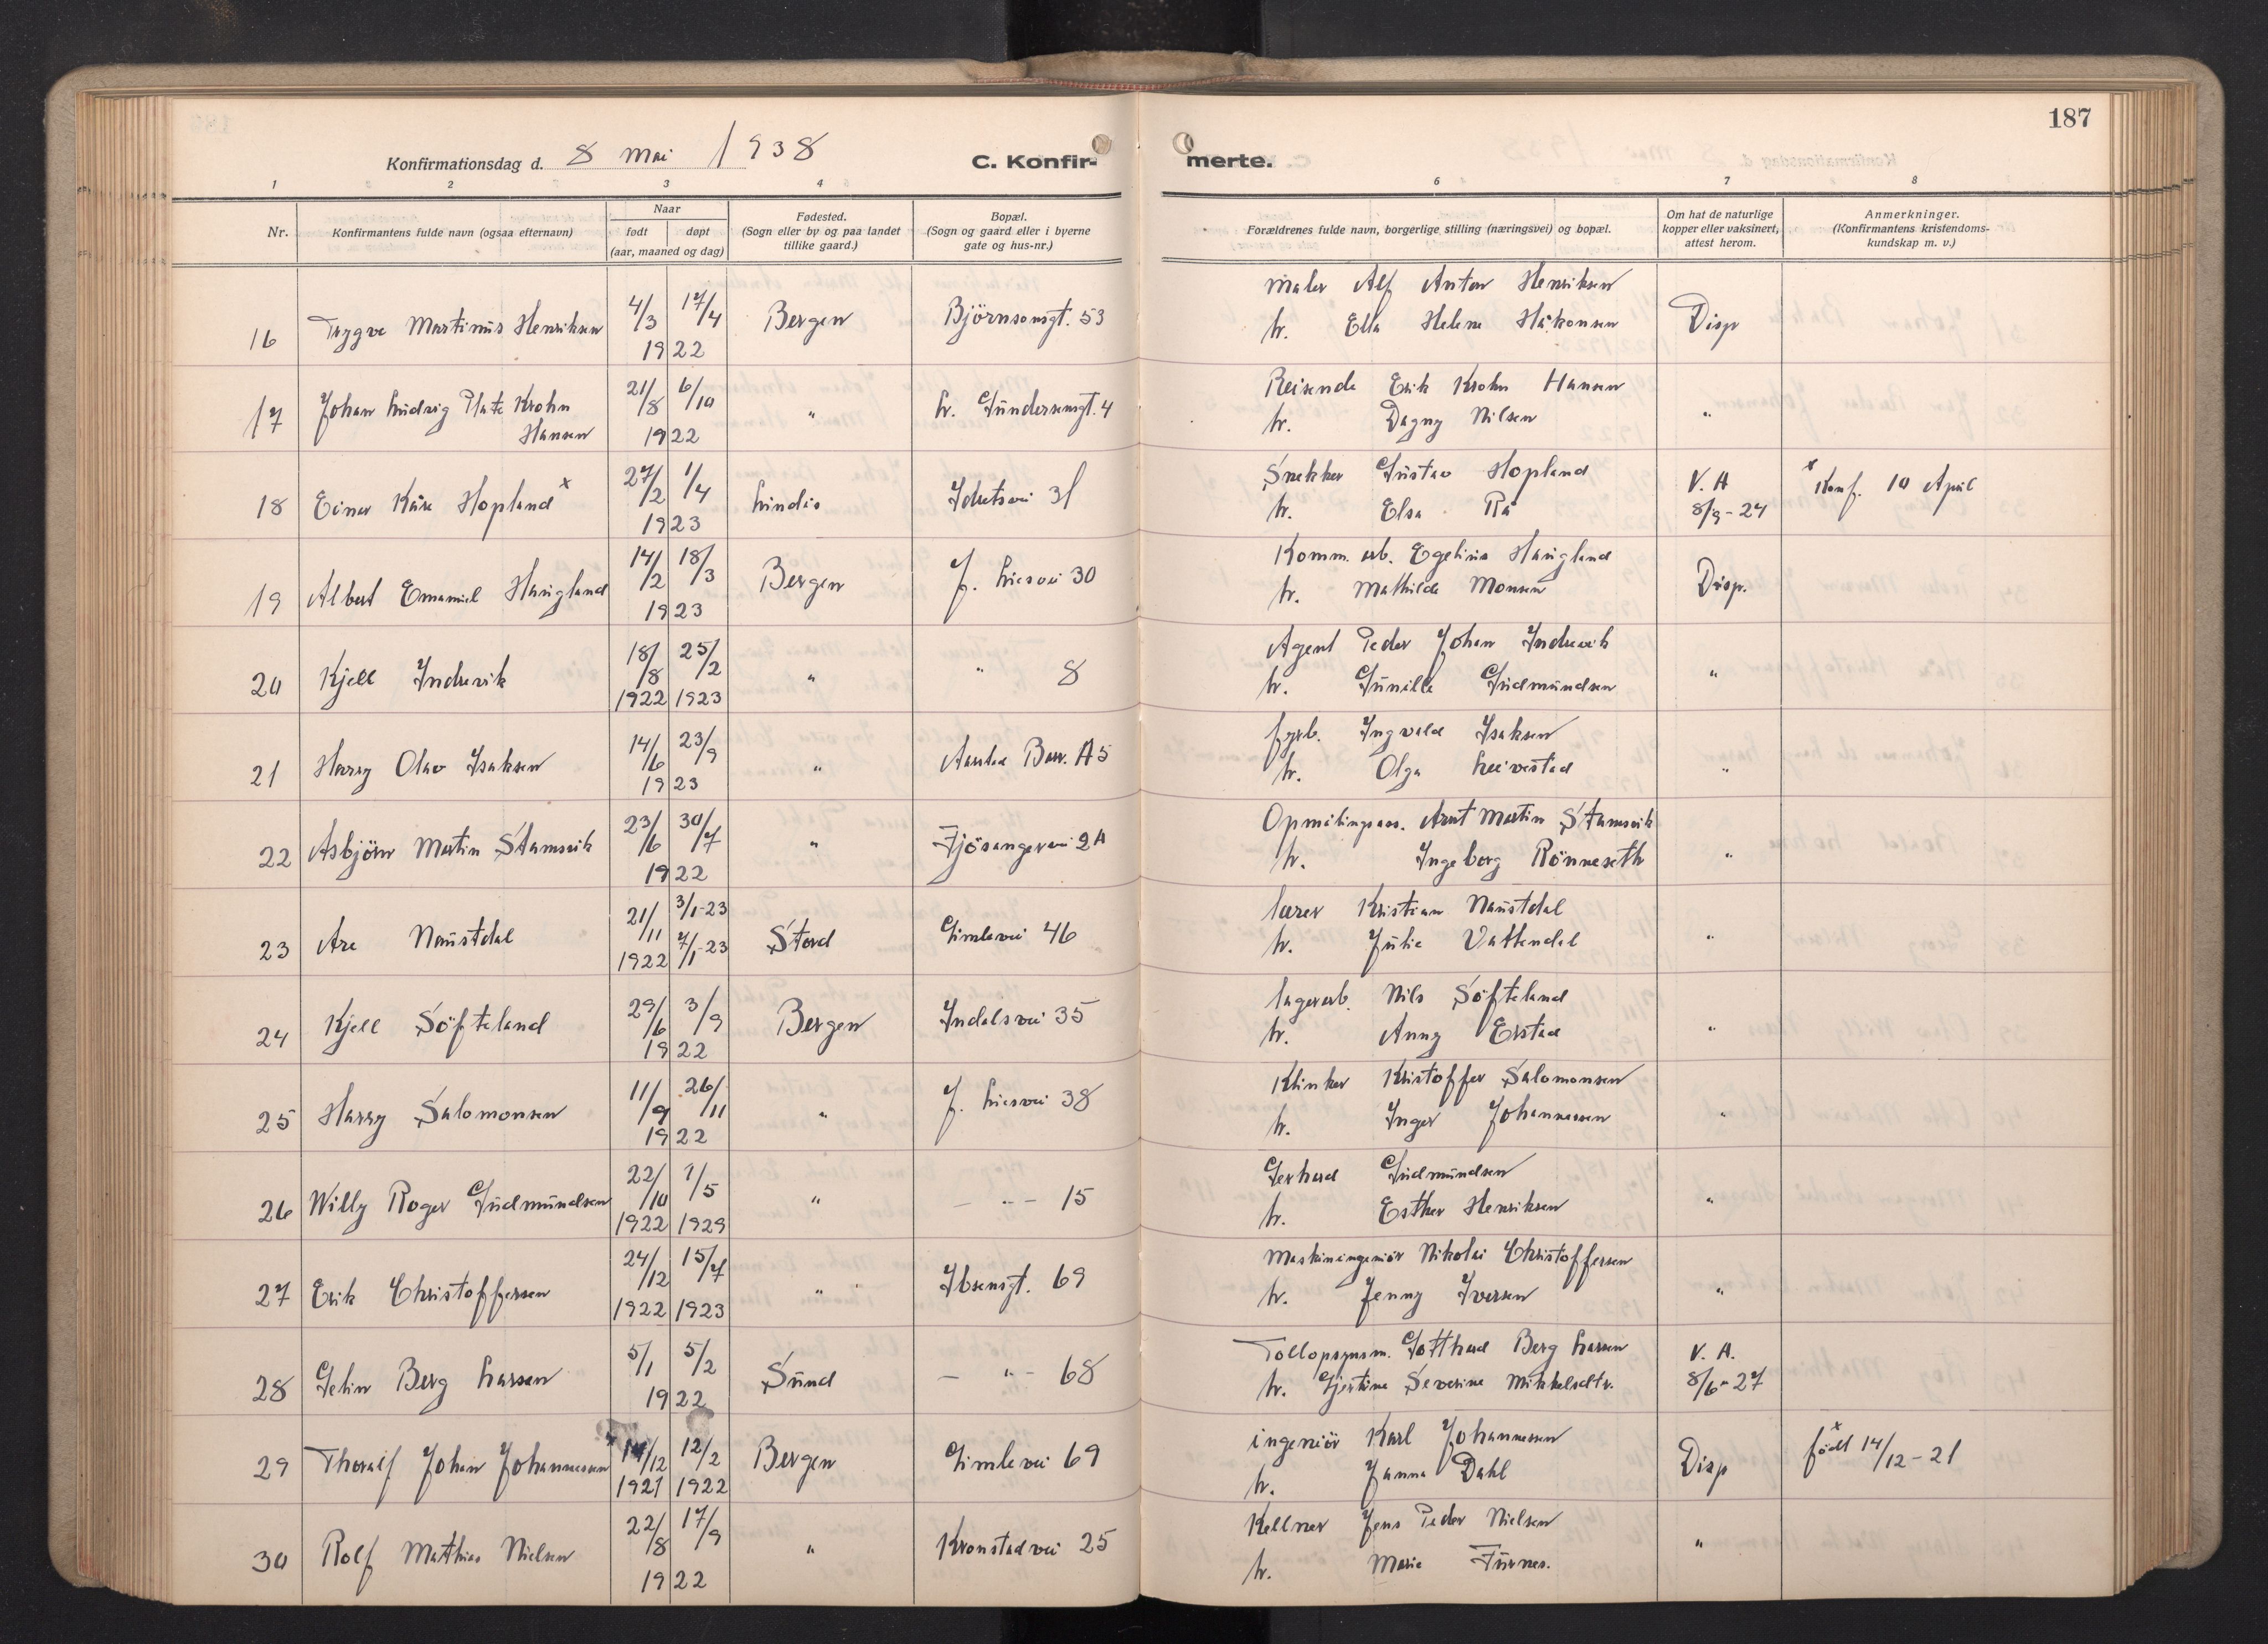 187
Konfirmationsdag d. 8 mai 1938
C. Konfir-
merte.
1 2 3 4 6 7 8
Nr.
Konfirmantens fulde navn (ogsaa efternavn)
Naar
født døpt
(aar, maaned og dag)
Fødested.
(Sogn eller by og paa landet
tillike gaard.)
Bopæl.
(Sogn og gaard eller i byerne
gate og hus-nr.)
Forældrenes fulde navn, borgerlige stilling (næringsvei) og bopæl.
Om hat de naturlige
kopper eller vaksinert,
attest herom.
Anmerkninger.
(Konfirmantens kristendoms-
kundskap m. v.)
maler Alf Anton Henriksen
16 Trygve Martinus Henriksen 4/3 17/4 Bergen Björnsonsgt. 53 h. Ella Helene Håkonsen Disp
1922
Reisende Erik Krohn Hansen
17 Johan Ludvig Plate Krohn 21/8 6/10 " L. Gundersensgt. 4
Hansen 1922 h. Dagny Nilsen "
Snekker Gustav Hopland V. A x Konf. 10 April
18 Einar Kåre Hopland x 27/2 1/4 Lindås Idretsvei 31
1923 h. Elsa Rå 8/9-24
Komm. arb. Egelius Haugland
19 Albert Emanuel Haugland 14/2 18/3 Bergen J. Liesvei 30 h. Mathilde Monsen Disp.
1923
Agent Peder Johan Indrevik
20 Kjell Indrevik 18/8 25/2 " " 8 h. Gunille Gudmundsen "
1922 1923
fyrb. Ingvald Isaksen
21 Harry Olav Isaksen 14/6 23/9 " Aastad Barr. A5 h. Olga Leivestad "
1923
Opmålingsass. Arnt Martin Stamsvik
22 Asbjörn Martin Stamsvik 23/6 30/7 " Fjösangervei 2A h. Ingeborg Rönneseth "
1922
lærer Kristian Naustdal
23 Are Naustdal 21/11 3/1-23 Stord Gimlevei 46 h. Julie Vattendal "
1922 7/1-23
lagerarb. Nils Söfteland
24 Kjell Söfteland 29/6 3/9 Bergen Indalsvei 35 h. Anny Erstad "
1922
Klinker Kristoffer Salomonsen
25 Harry Salomonsen 11/9 26/11 " J. Liesvei 38 h. Inger Johannessen "
1922
Gerhard Gudmundsen
26 Willy Roger Gudmundsen 22/10 1/5 " - " - 15 h. Esther Henriksen "
1922 1929
Maskiningeniör Nikolai Christoffersen
27 Erik Christoffersen 24/12 15/7 " Ibsensgt. 69 h. Jenny Iversen "
1922 1923
Tollopsynsm. Gotthard Berg Larsen V. A.
28 Gelin Berg Larsen 5/1 5/2 Sund - " - 68 h. Gjertine Severine Mikkelsdtr. 8/6-27
1922
ingeniör Karl Johannessen x
29 Thoralf Johan Johannessen x 14/12 12/2 Bergen Gimlevei 69 h. Janna Dahl Disp född 14/12-21
1921 1922
Kellner Jens Peder Nielsen
30 Rolf Mathias Nielsen 22/8 17/9 " Kronstadvei 25 h. Marie Furnes. "
1922